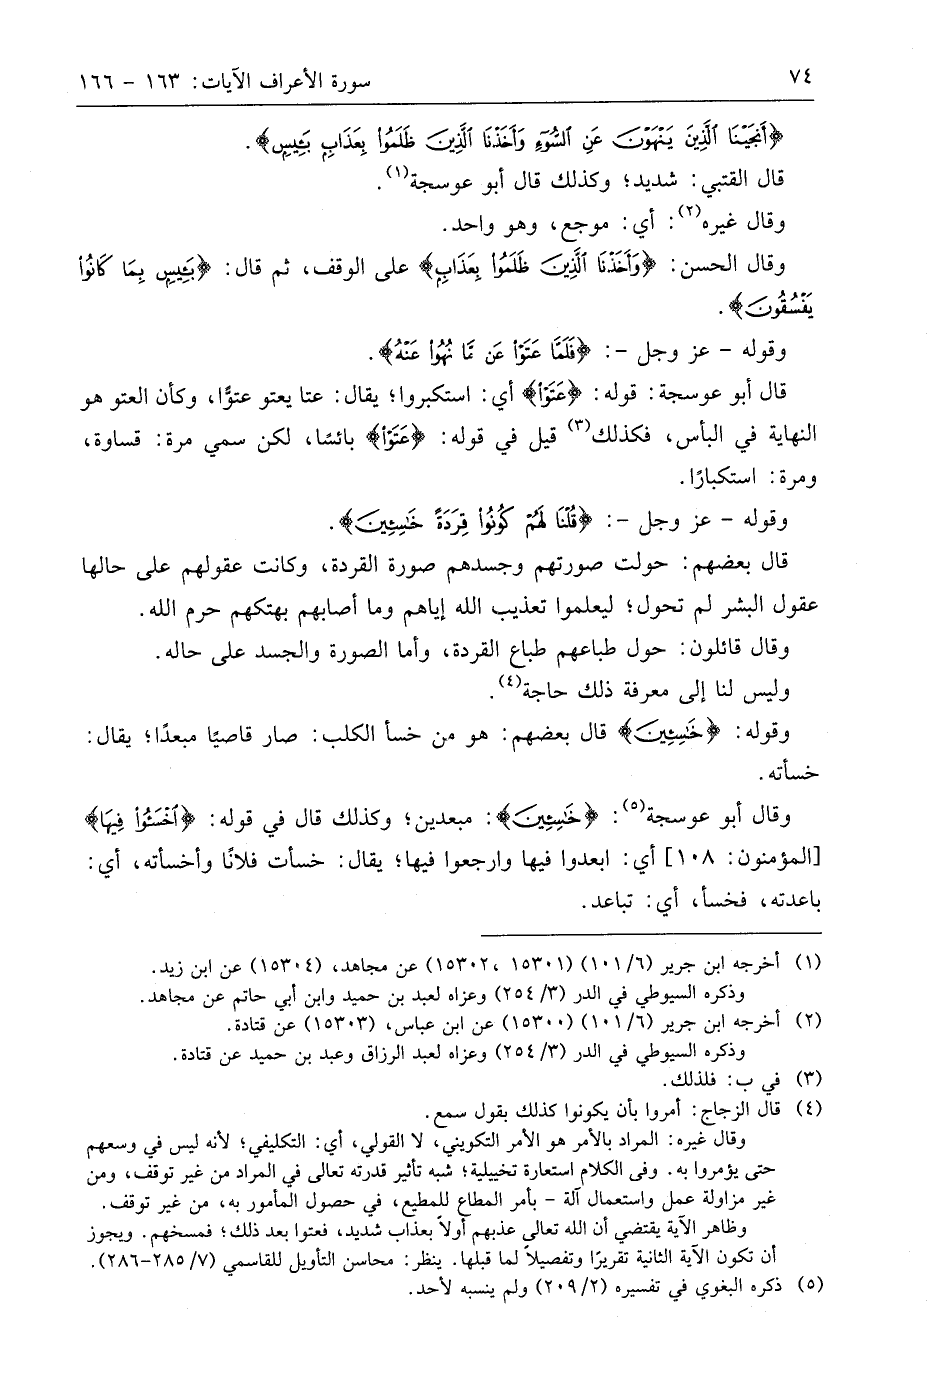 ٧٤ سورة الأعراف الآيات: ١٦٣ - ١٦٦
﴿أَنجَيْنَا ٱلَّذِينَ يَنْهَوْنَ عَنِ ٱلسُّوٓءِ وَأَخَذْنَا ٱلَّذِينَ ظَلَمُوا۟ بِعَذَابٍ بَـِٔيسٍ﴾.
قال القتبي: شديد؛ وكذلك قال أبو عوسجة(١).
وقال غيره(٢): أي: موجع، وهو واحد.
وقال الحسن: ﴿وَأَخَذْنَا ٱلَّذِينَ ظَلَمُوا۟ بِعَذَابٍ﴾ على الوقف، ثم قال: ﴿بَـِٔيسٍ بِمَا كَانُوا۟
يَفْسُقُونَ﴾.
وقوله - عز وجل -: ﴿فَلَمَّا عَتَوْا۟ عَن مَّا نُهُوا۟ عَنْهُ﴾.
قال أبو عوسجة: قوله: ﴿عَتَوْا۟﴾ أي: استكبروا؛ يقال: عتا يعتو عتوًّا، وكأن العتو هو
النهاية في البأس، فكذلك(٣) قيل في قوله: ﴿عَتَوْا۟﴾ بائسًا، لكن سمي مرة: قساوة،
ومرة: استكبارًا.
وقوله - عز وجل -: ﴿قُلْنَا لَهُمْ كُونُوا۟ قِرَدَةً خَـٰسِـِٔينَ﴾.
قال بعضهم: حولت صورتهم وجسدهم صورة القردة، وكانت عقولهم على حالها
عقول البشر لم تحول؛ ليعلموا تعذيب الله إياهم وما أصابهم بهتكهم حرم الله.
وقال قائلون: حول طباعهم طباع القردة، وأما الصورة والجسد على حاله.
وليس لنا إلى معرفة ذلك حاجة(٤).
وقوله: ﴿خَـٰسِـِٔينَ﴾ قال بعضهم: هو من خسأ الكلب: صار قاصيًا مبعدًا؛ يقال:
خسأته.
وقال أبو عوسجة(٥): ﴿خَـٰسِـِٔينَ﴾: مبعدين؛ وكذلك قال في قوله: ﴿ٱخْسَـُٔوا۟ فِيهَا﴾
[المؤمنون: ١٠٨] أي: ابعدوا فيها وارجعوا فيها؛ يقال: خسأت فلانًا وأخسأته، أي:
باعدته، فخسأ، أي: تباعد.
(١) أخرجه ابن جرير (٦/ ١٠١) (١٥٣٠١، ١٥٣٠٢) عن مجاهد، (١٥٣٠٤) عن ابن زيد.
وذكره السيوطي في الدر (٣/ ٢٥٤) وعزاه لعبد بن حميد وابن أبي حاتم عن مجاهد.
(٢) أخرجه ابن جرير (٦/ ١٠١) (١٥٣٠٠) عن ابن عباس، (١٥٣٠٣) عن قتادة.
وذكره السيوطي في الدر (٣/ ٢٥٤) وعزاه لعبد الرزاق وعبد بن حميد عن قتادة.
(٣) في ب: فلذلك.
(٤) قال الزجاج: أمروا بأن يكونوا كذلك بقول سمع.
وقال غيره: المراد بالأمر هو الأمر التكويني، لا القولي، أي: التكليفي؛ لأنه ليس في وسعهم
حتى يؤمروا به. وفى الكلام استعارة تخييلية؛ شبه تأثير قدرته تعالى في المراد من غير توقف، ومن
غير مزاولة عمل واستعمال آلة - بأمر المطاع للمطيع، في حصول المأمور به، من غير توقف.
وظاهر الآية يقتضي أن الله تعالى عذبهم أولاً بعذاب شديد، فعتوا بعد ذلك؛ فمسخهم. ويجوز
أن تكون الآية الثانية تقريرًا وتفصيلاً لما قبلها. ينظر: محاسن التأويل للقاسمي (٧/ ٢٨٥-٢٨٦).
(٥) ذكره البغوي في تفسيره (٢/ ٢٠٩) ولم ينسبه لأحد.